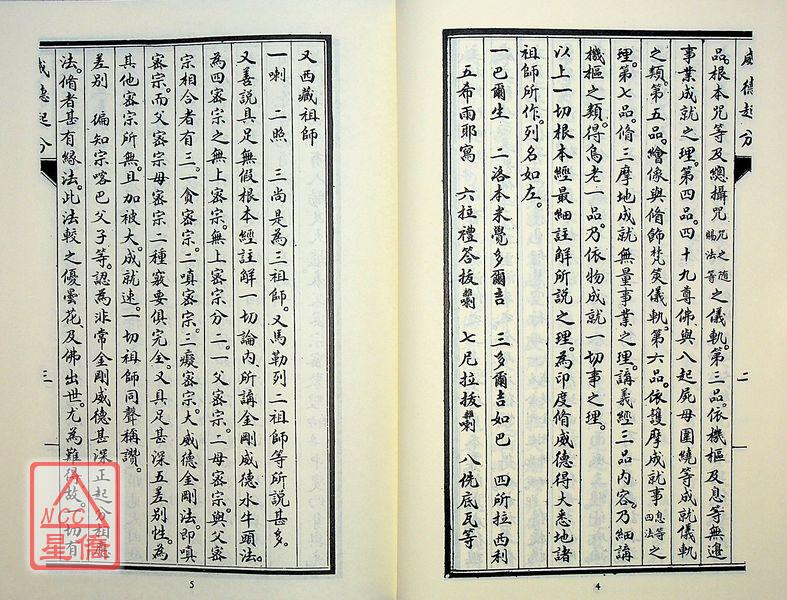 威德起分
二
品。根本咒等及總攝咒咒之隨賜法等之儀軌。第三品。依機樞及息等無邊
事業成就之理。第四品。四十九尊佛與八起屍母圍繞等成就儀軌
之類。第五品。繪像與脩飾梵筴儀軌。第六品。依護摩成就事息等四法之
理。第七品。脩三摩地成就無量事業之理。講義經三品內容。乃細講
機樞之類。得烏老一品。乃依物成就一切事之理。
以上一切根本經最細註解所說之理。為印度脩威德得大悉地諸
祖師所作。列名如左。
一巴爾生 二洛本米覺多爾吉 三多爾吉如巴 四所拉西利
五希雨耶寫 六拉禮答拔喇 七尼拉拔喇 八侁底瓦等
4
又西藏祖師
一喇 二照 三尚是為三祖師。又馬勒列二祖師等所說甚多。
又善說具足無假根本經註解一切論內所講金剛威德水牛頭法。
為四密宗之無上密宗。無上密宗分二。一父密宗。二母密宗。與父密
宗相合者有三。一貪密宗。二嗔密宗。三癡密宗。大威德金剛法。即嗔
密宗。而父密宗母密宗二種竅要俱完全。又具足甚深五差別性。為
其他密宗所無。且加被大。成就速。一切祖師同聲稱讚。
差別 徧知宗喀巴父子等。認為非常金剛威德甚深正起分相應
法。脩者甚有緣法。此法較之優曇花。及佛出世。尤為難得故。一切有
威德起分
三
5
NCC
星僑